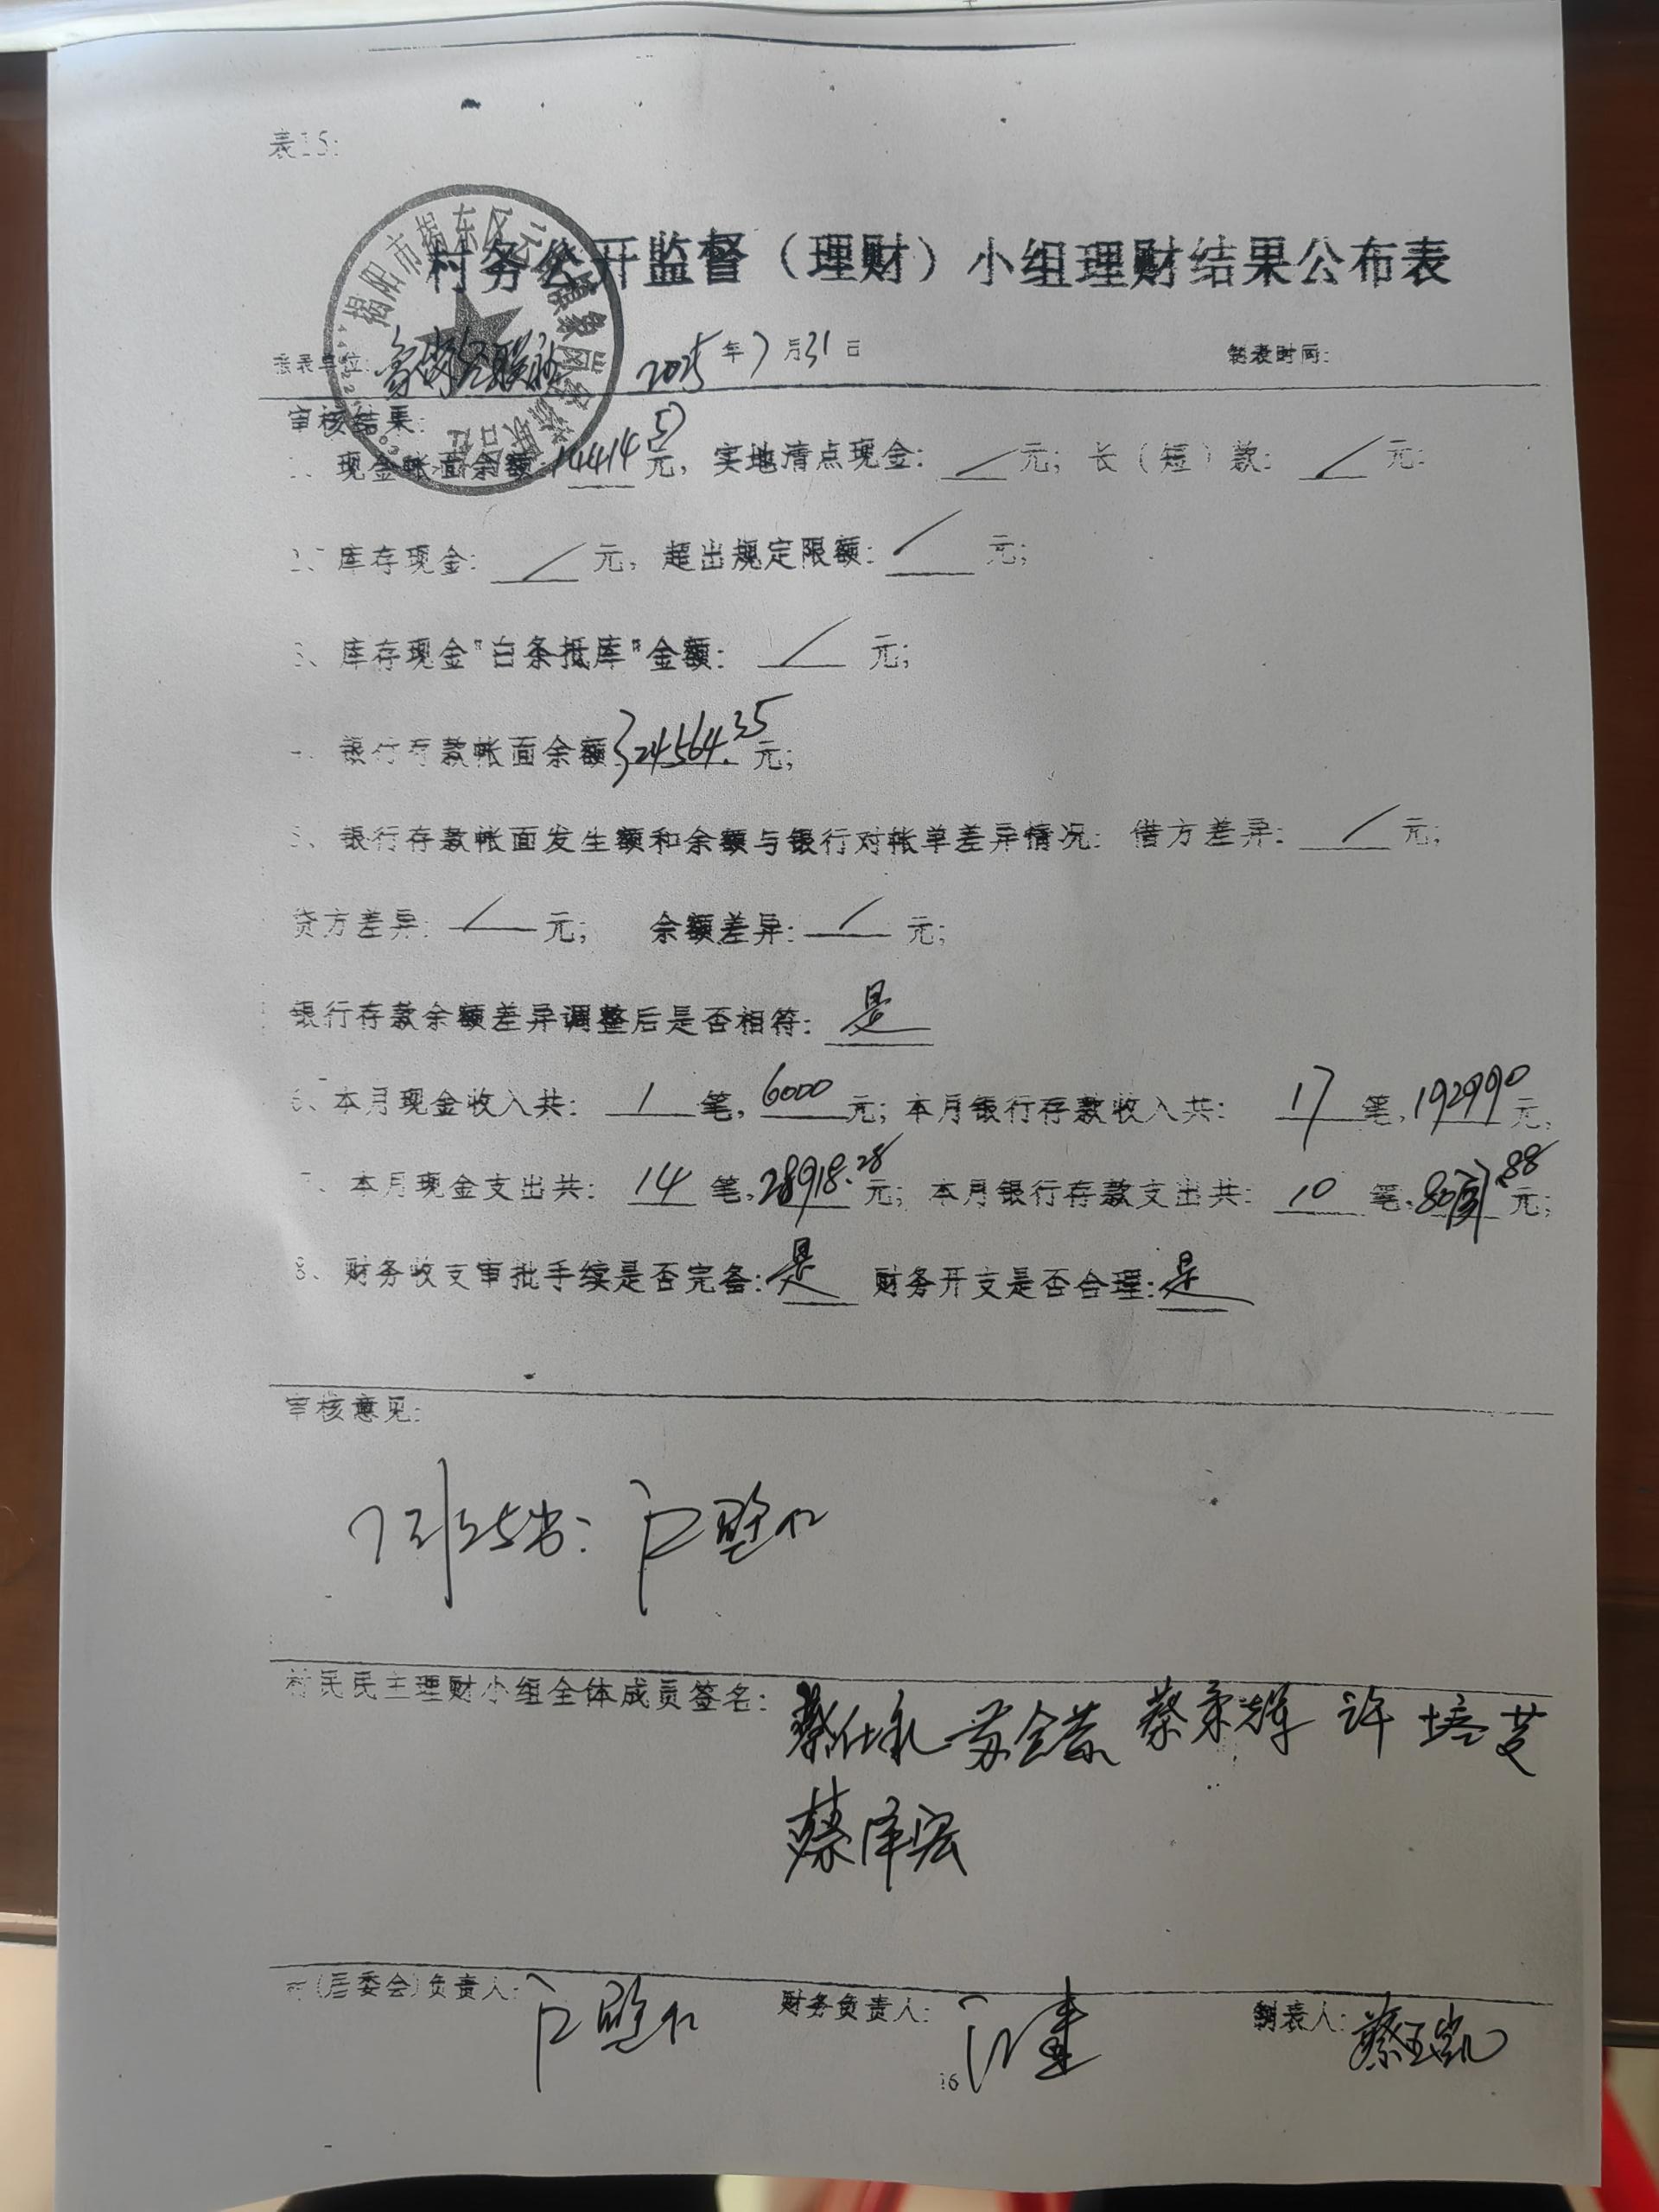 表15:
村务公开监督（理财）小组理财结果公布表
揭阳市揭东区
2025年7月31日 制表时间:
审核结果:
现金帐面余额: 14414 元, 实地清点现金: / 元; 长（短）款: / 元;
2、库存现金: / 元, 超出规定限额: / 元;
3、库存现金"白条抵库"金额: / 元;
银行存款帐面余额 324564.35 元;
5、银行存款帐面发生额和余额与银行对帐单差异情况: 借方差异: / 元;
贷方差异: / 元; 余额差异: / 元;
银行存款余额差异调整后是否相符: 是
6、本月现金收入共: 1 笔, 6000 元; 本月银行存款收入共: 17 笔, 192990 元,
本月现金支出共: 14 笔, 28918.28 元; 本月银行存款支出共: 10 笔, 元;
8、财务收支审批手续是否完备: 是 财务开支是否合理: 是
审核意见:
村民民主理财小组全体成员签名: 蔡仕 蔡 许培
蔡泽宏
(居委会)负责人: 财务负责人: 制表人: 蔡
16